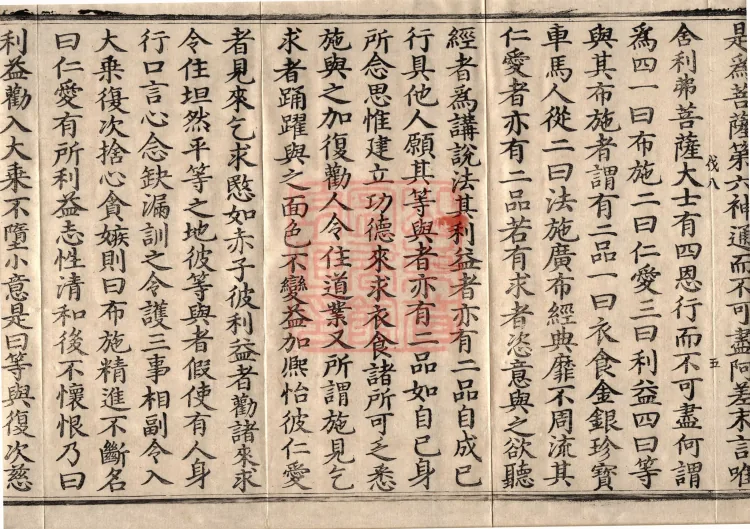 是爲菩薩第六神通而不可盡阿差末言唯
伐八
五
舍利弗菩薩大士有四恩行而不可盡何謂
爲四一曰布施二曰仁愛三曰利益四曰等
與其布施者謂有二品一曰衣食金銀珍寶
車馬人從二曰法施廣布經典靡不周流其
仁愛者亦有二品若有求者恣意與之欲聽
經者爲講說法其利益者亦有二品自成已
行具他人願其等與者亦有二品如自已身
所念思惟建立功德來求衣食諸所可乏悉
施與之加復勸人令住道業又所謂施見乞
求者踊躍與之面色不變益加熈怡彼仁愛
者見來乞求愍如赤子彼利益者勸諸來求
令住坦然平等之地彼等與者假使有人身
行口言心念缺漏訓之令護三事相副令入
大乗復次捨心貪嫉則曰布施精進不斷名
曰仁愛有所利益志性清和後不懷恨乃曰
利益勸入大乗不墮小意是曰等與復次慈